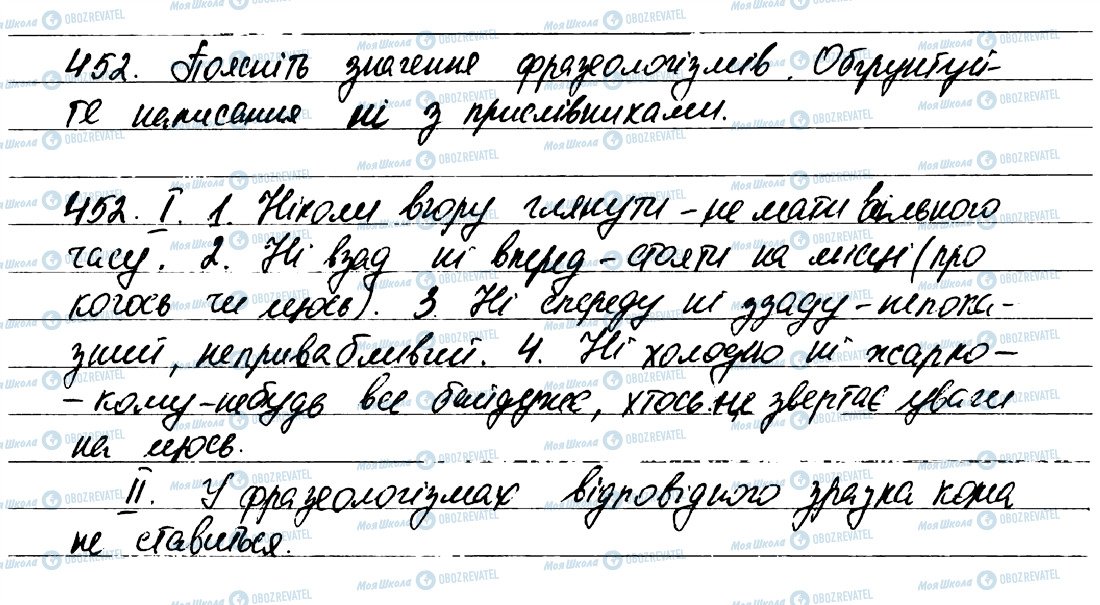 452. Поясніть значення фразеологізмів. Обґрунтуй-
те написання ні з прислівниками.
452. I. 1. Ніколи вгору глянути - не мати вільного
часу. 2. Ні взад ні вперед - стояти на місці (про
когось чи щось). 3. Ні спереду ні ззаду - непока-
зний, непривабливий. 4. Ні холодно ні жарко -
- кому-небудь все байдуже, хтось не звертає уваги
на щось.
II. У фразеологізмах відповідного зразка кома
не ставиться.